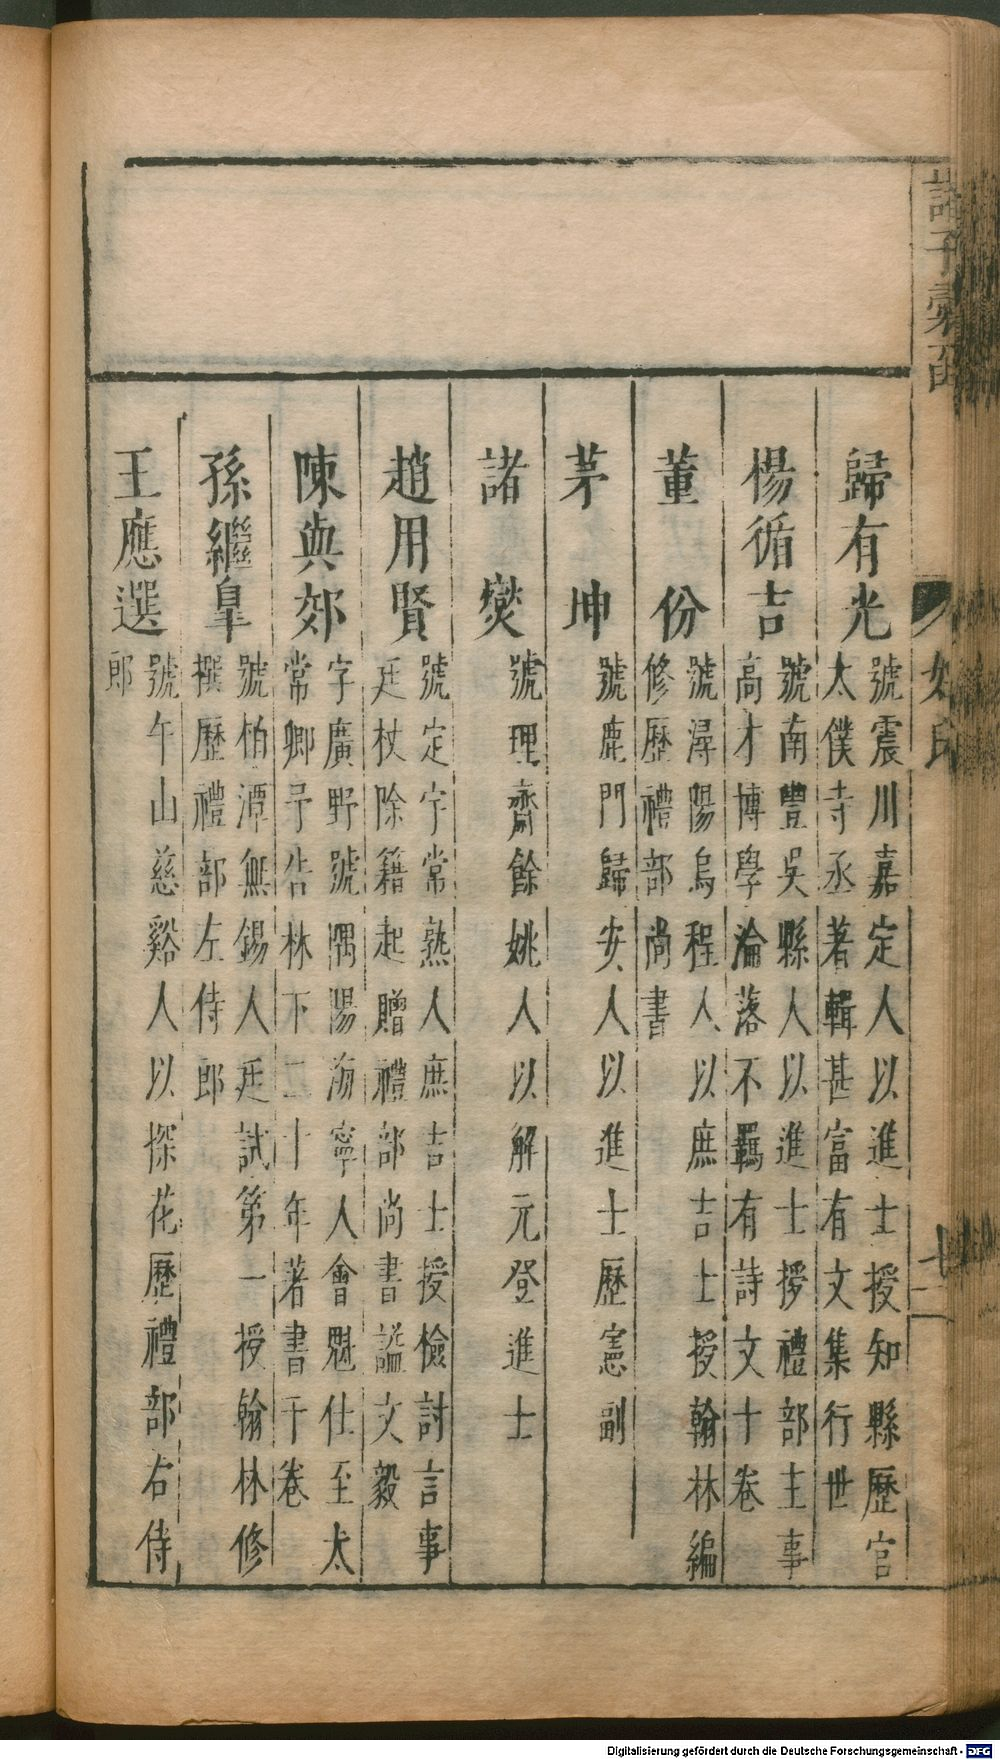 諸子彙函
姓氏
十一
歸有光 號震川嘉定人以進士授知縣歷官
太僕寺丞著輯甚富有文集行世
楊循吉 號南豐吳縣人以進士授禮部主事
高才博學淪落不羈有詩文十卷
董份 號潯陽烏程人以庶吉士授翰林編
修歷禮部尚書
茅坤 號鹿門歸安人以進士歷憲副
諸燮 號理齋餘姚人以解元登進士
趙用賢 號定宇常熟人庶吉士授檢討言事
廷杖除籍起贈禮部尚書謚文毅
陳與郊 字廣野號隅陽海寧人會魁仕至太
常卿予告林下二十年著書千卷
孫繼皐 號柏潭無錫人廷試第一授翰林修
撰歷禮部左侍郎
王應選 號午山慈谿人以探花歷禮部右侍
郎
Digitalisierung gefördert durch die Deutsche Forschungsgemeinschaft - DFG